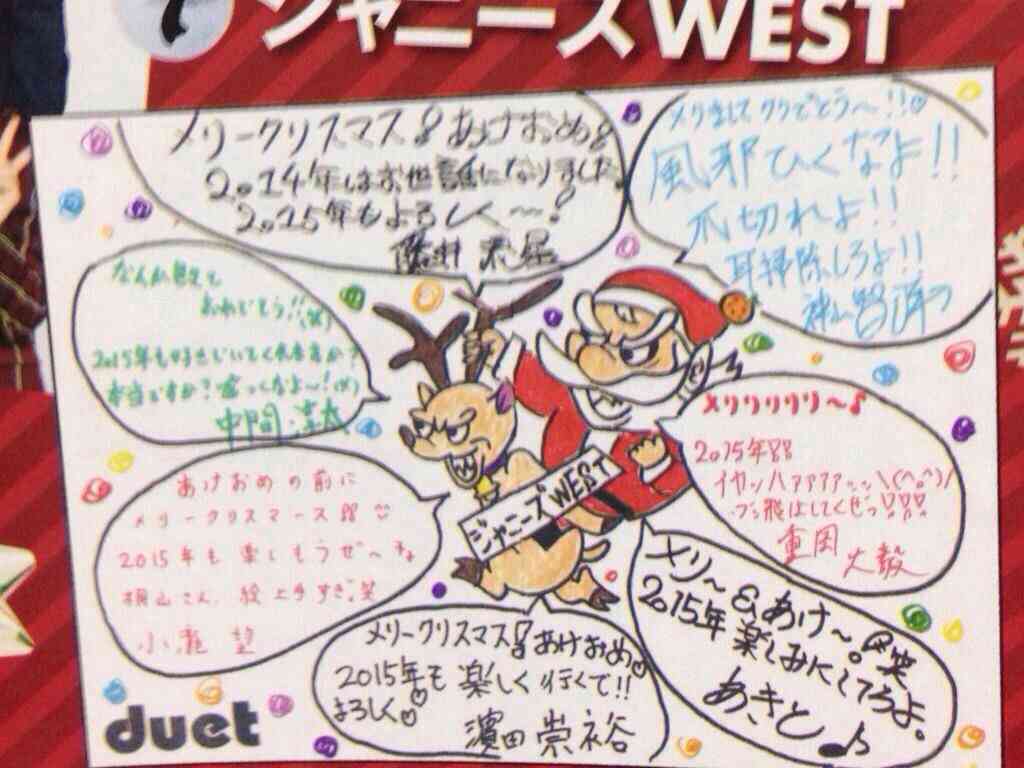 ジャニーズWEST
メリークリスマス♪あけおめ♪
2014年はお世話になりました。
2015年もよろしく〜!
藤井 流星
メリましてクリでとう〜!!♡
風邪ひくなよ!!
爪切れよ!!
耳掃除しろよ!!
神山智洋
なんか
おめでとう!!(笑)
2015年も好きでいてくれますか?
本当ですか?嘘つくなよ〜!(笑)
中間 淳太
メリクリクリ〜♪
2015年
イヤッハァァァァッッ\(^o^)/
ブッ飛ばしてくぜっ!!!
重岡 大毅
あけおめの前に
メリークリスマース
2015年も楽しもうぜ〜
桐山さん、絵上手すぎ。笑
小瀧 望
ジャニーズWEST
メリ〜&あけ〜。笑
2015年楽しみにしてろよ。
あきと♪
メリークリスマス!あけおめ♡
2015年も楽しく行くで!!
よろしく♡
濵田崇裕
duet